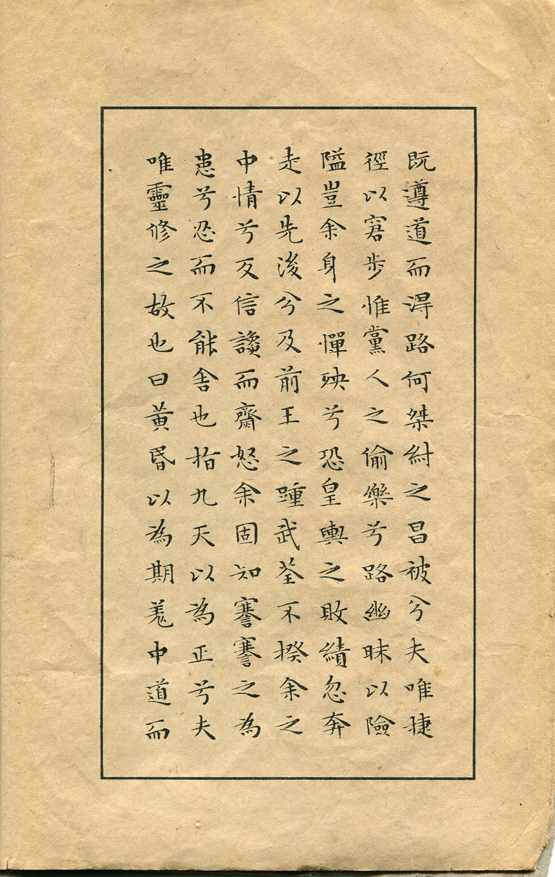 既遵道而得路何桀紂之昌被兮夫唯捷
徑以窘步惟黨人之偷樂兮路幽昧以險
隘豈余身之憚殃兮恐皇輿之敗績忽奔
走以先後兮及前王之踵武荃不揆余之
中情兮反信讒而齋怒余固知謇謇之為
患兮忍而不能舍也指九天以為正兮夫
唯靈修之故也曰黃昬以為期羌中道而